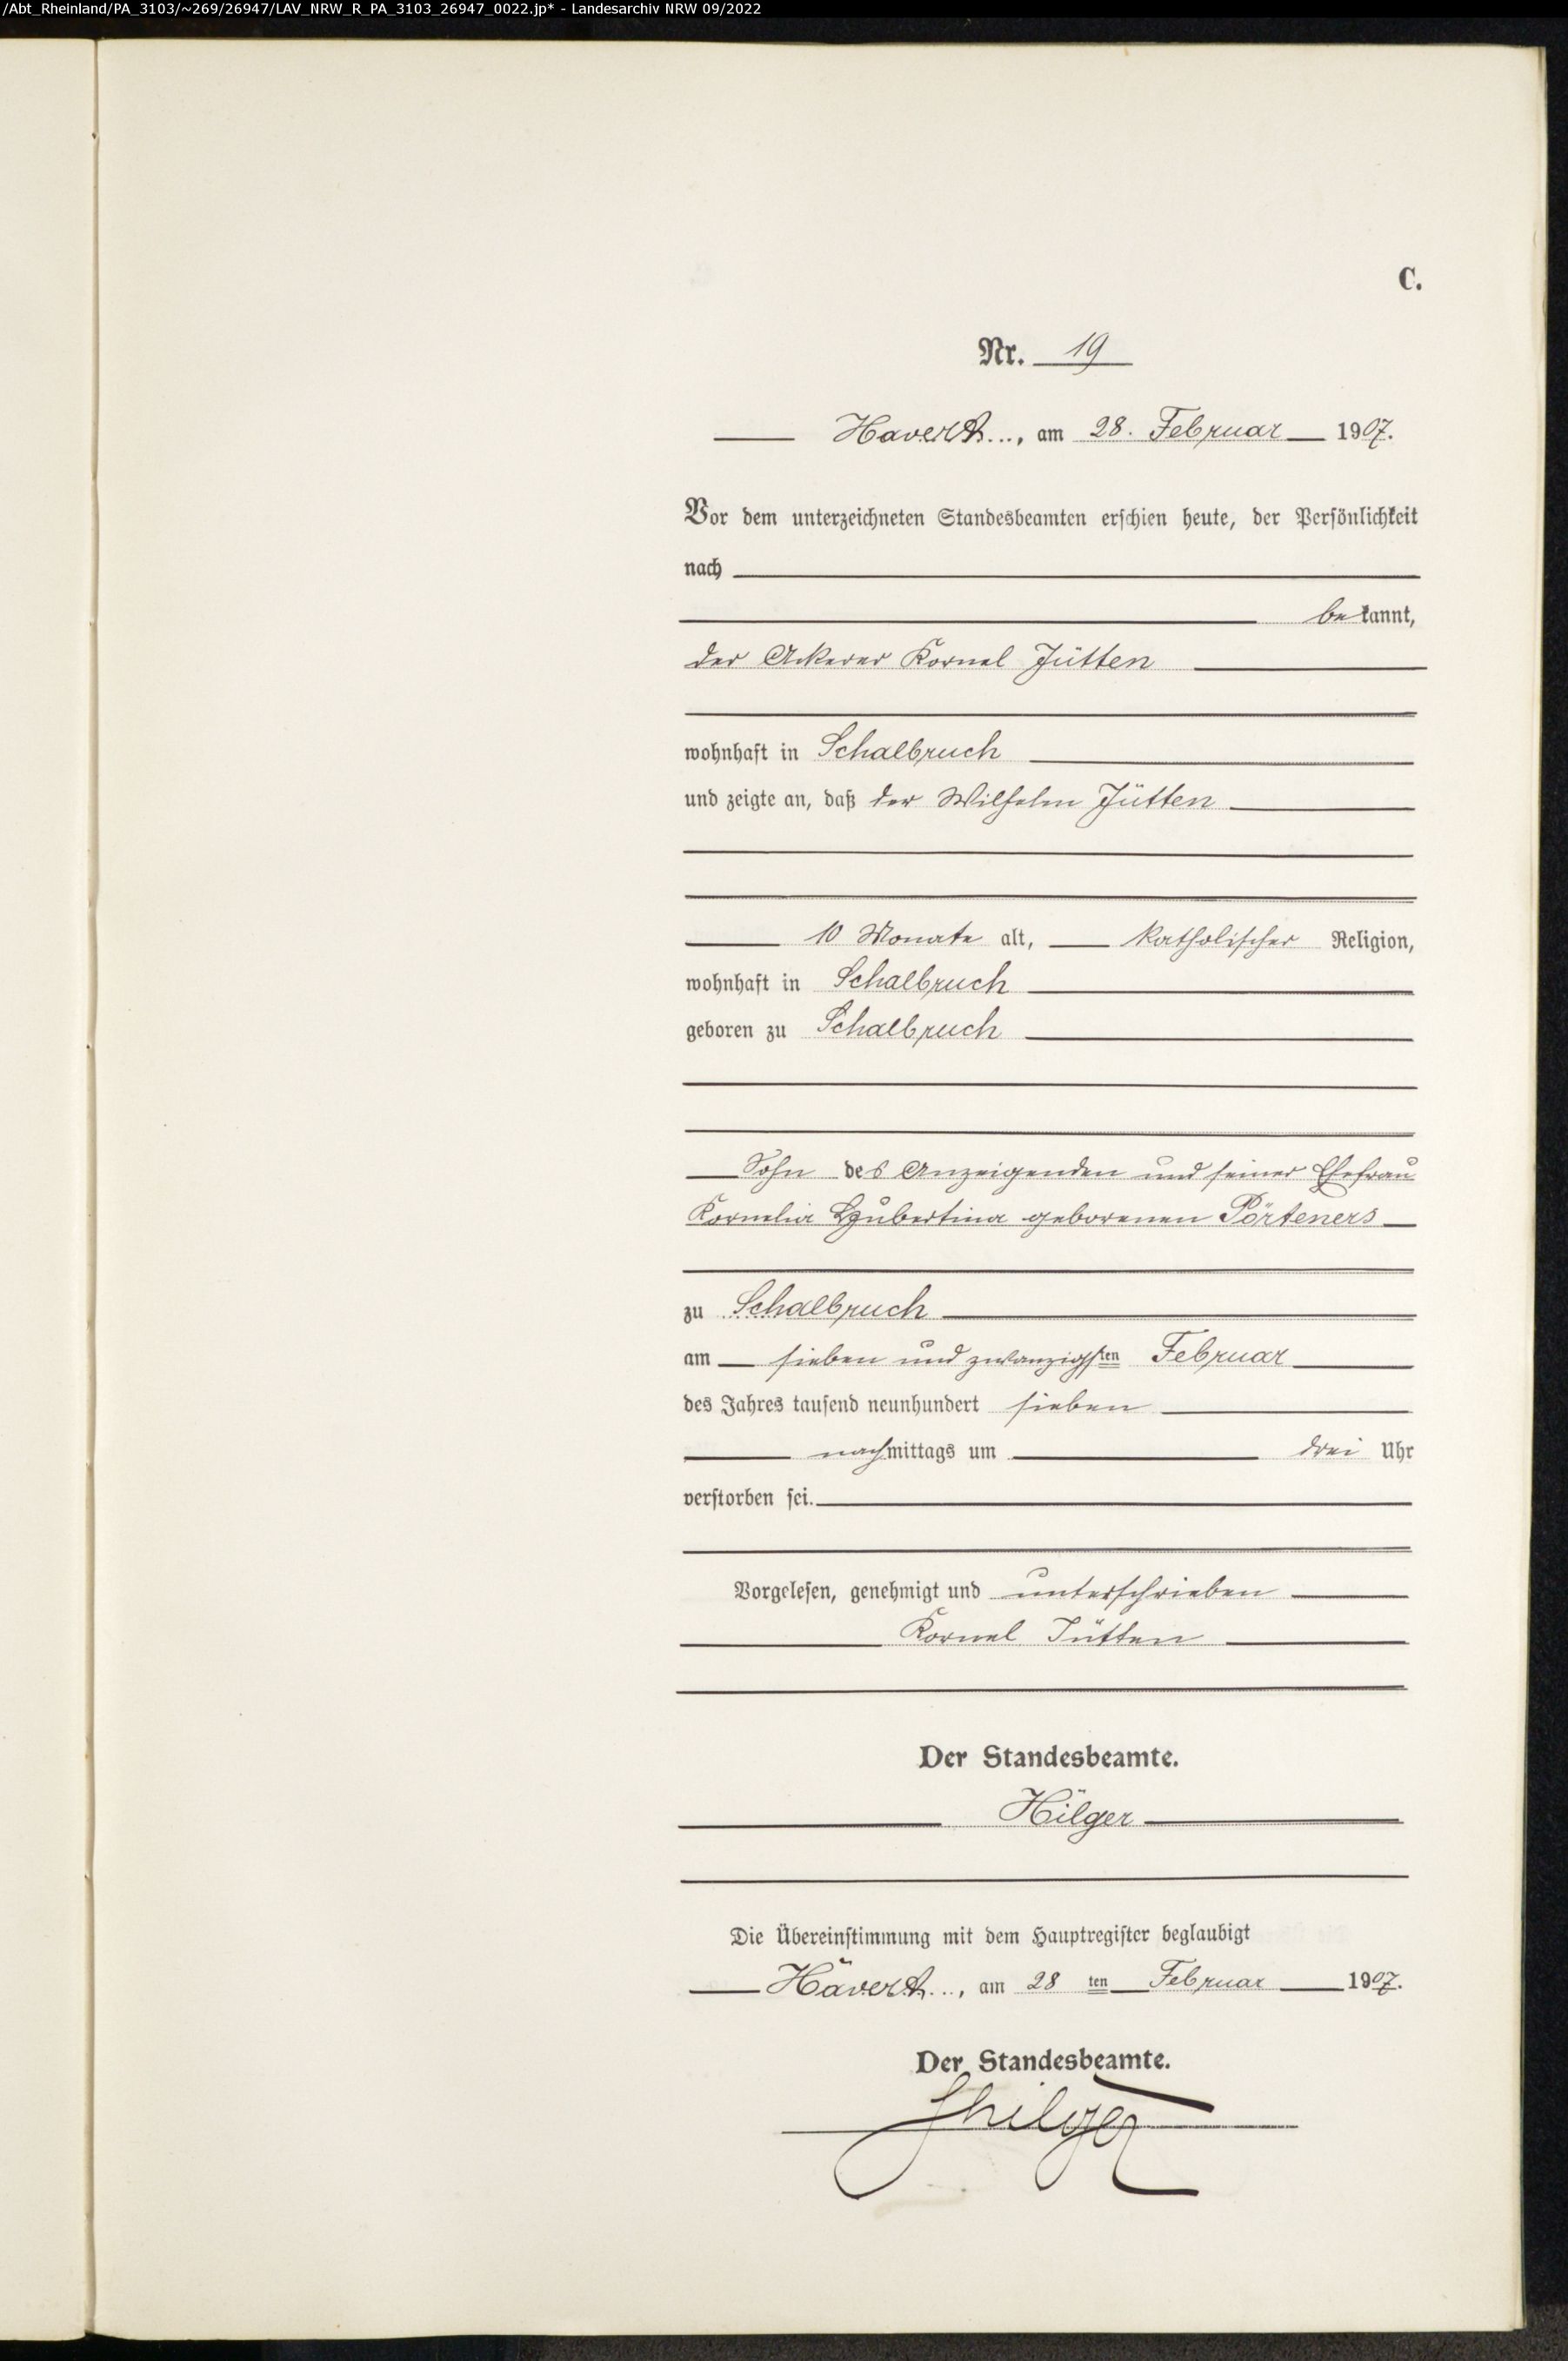 /Abt_Rheinland/PA_3103/~269/26947/LAV_NRW_R_PA_3103_26947_0022.jp* - Landesarchiv NRW 09/2022
C.
Nr. 19
Havert..., am 28. Februar 1907.
Vor dem unterzeichneten Standesbeamten erschien heute, der Persönlichkeit
nach
bekannt,
der Ackerer Kornel Jütten
wohnhaft in Schalbruch
und zeigte an, daß der Wilhelm Jütten
10 Monate alt, katholischer Religion,
wohnhaft in Schalbruch
geboren zu Schalbruch
Sohn des Anzeigenden und seiner Ehefrau
Kornelia Hubertina geborenen Pörteners
zu Schalbruch
am sieben und zwanzigsten Februar
des Jahres tausend neunhundert sieben
nachmittags um drei Uhr
verstorben sei.
Vorgelesen, genehmigt und unterschrieben
Kornel Jütten
Der Standesbeamte.
Hilger
Die Übereinstimmung mit dem Hauptregister beglaubigt
Havert..., am 28 ten Februar 1907.
Der Standesbeamte.
Hilger